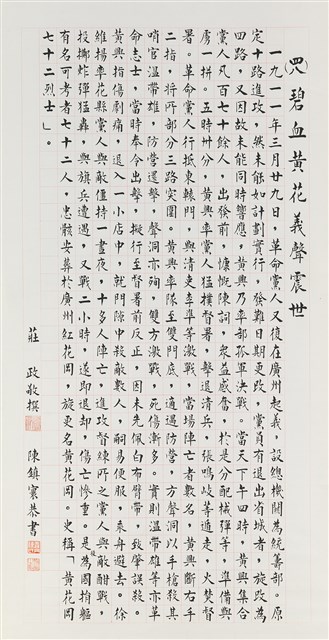 (四)碧血黃花義聲震世
一九一一年三月廿九日，革命黨人又復在廣州起義，設總機關為統籌部。原
定十路進攻，然未能如計劃實行，發難日期更改，黨員有退出省城者，旋改為
四路，又因故未能同時響應，黃興乃率部孤軍決戰。當天下午四時，黃興集合
黨人凡百七十餘人，出發前，慷慨陳詞，眾益感奮。於是分配械彈等，準備與
虜一拼。五時卅分，黃興率黨人猛撲督署，擊退清兵，張鳴岐等遁走，火焚督
署。革命黨人行抵東轅門，與清吏李準等激戰，當場陣亡者數名，黃興斷右手
二指，將所部分三路突圍。黃興率隊至雙門底，適遇防營，方聲洞以手槍殺其
哨官溫帶雄，防營還擊，聲洞亦殉，雙方激戰，死傷漸多。實則溫帶雄等亦革
命志士，當時奉令出擊，擬行至督署前反正，因未先佩白布臂帶，致肇誤殺。
黃興指傷劇痛，退入一小店中，就門隙中殺敵數人，嗣易便服，乘舟避去。徐
維揚率花縣黨人與敵僵持一晝夜，十多人陣亡，進攻督練所之黨人與敵酣戰，
投擲炸彈猛轟，與旗兵遭遇，又戰二小時，遂即退卻，傷亡慘重。是役為國捐軀
有名可考者七十二人，忠骸安葬於廣州紅花岡，旋更名黃花岡。史稱「黃花岡
七十二烈士」。
莊　政敬撰　陳鎮寰恭書